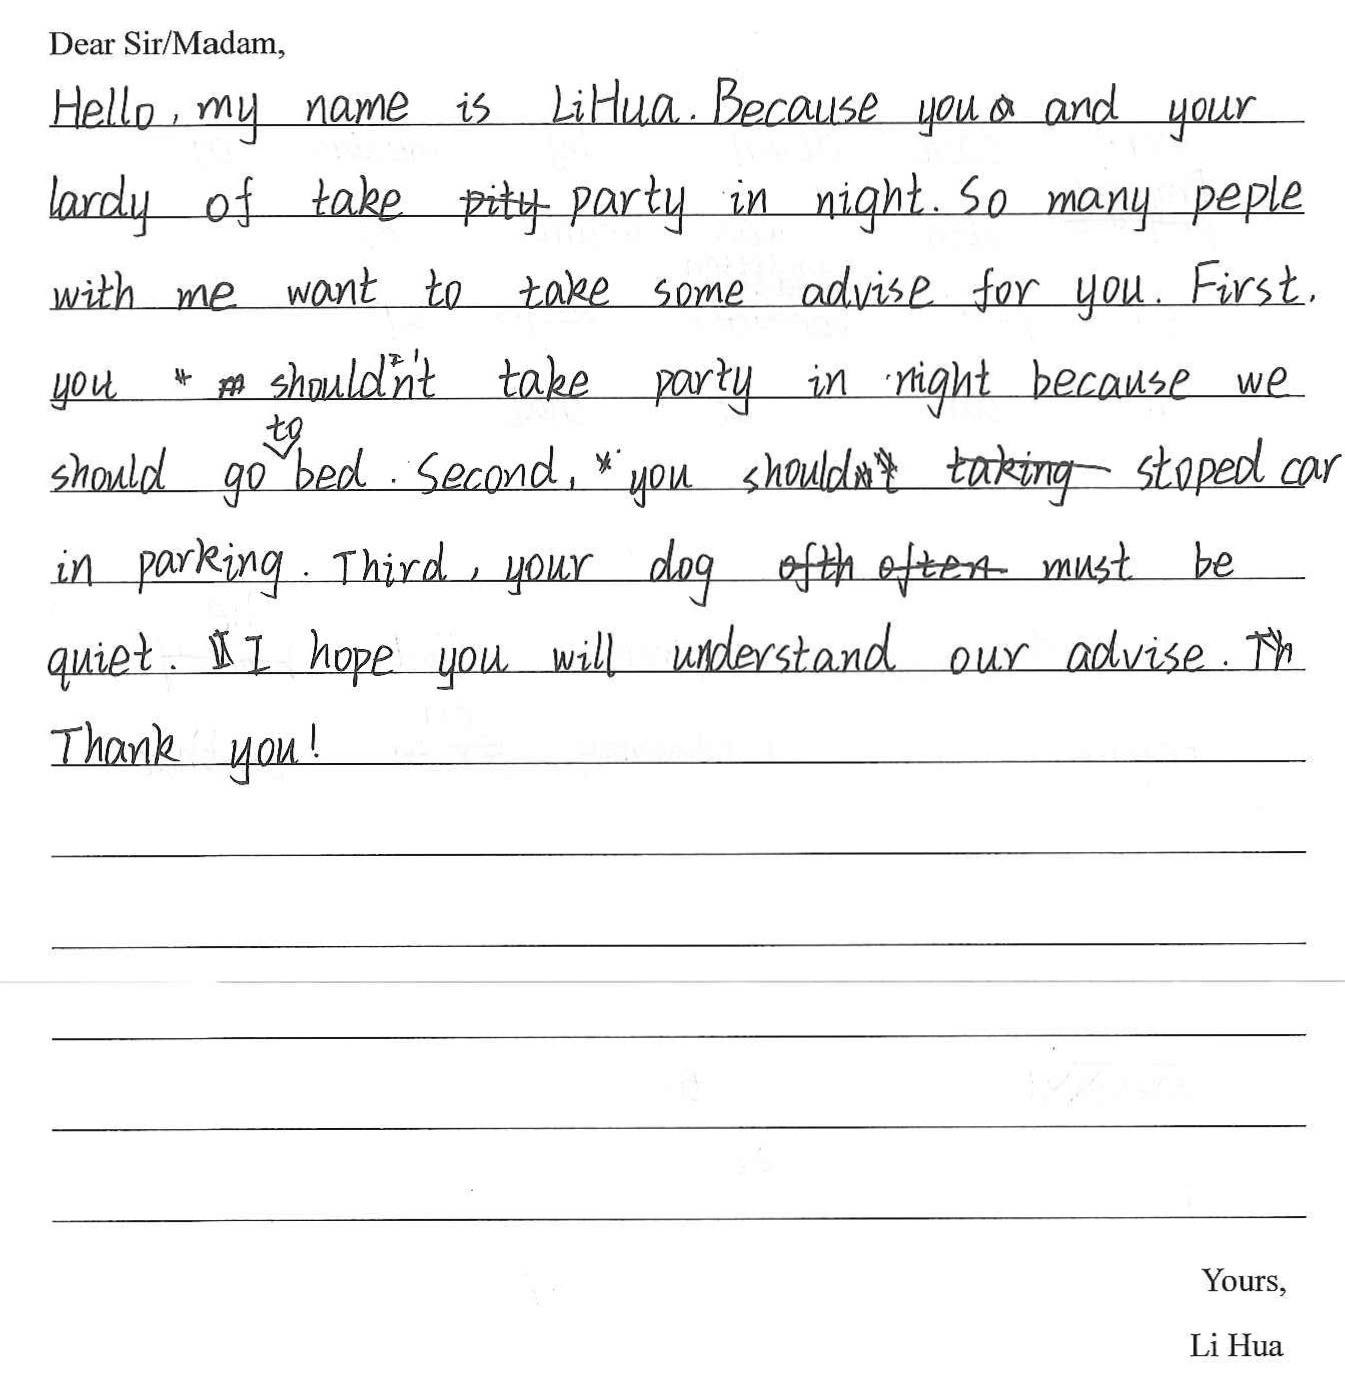 Dear Sir/Madam,
Hello, my name is LiHua. Because you and your
lardy of take party in night. So many peple
with me want to take some advise for you. First,
you shouldn't take party in night because we
should go to bed. Second, you should stoped car
in parking. Third, your dog must be
quiet. I hope you will understand our advise. Th
Thank you!
Yours,
Li Hua